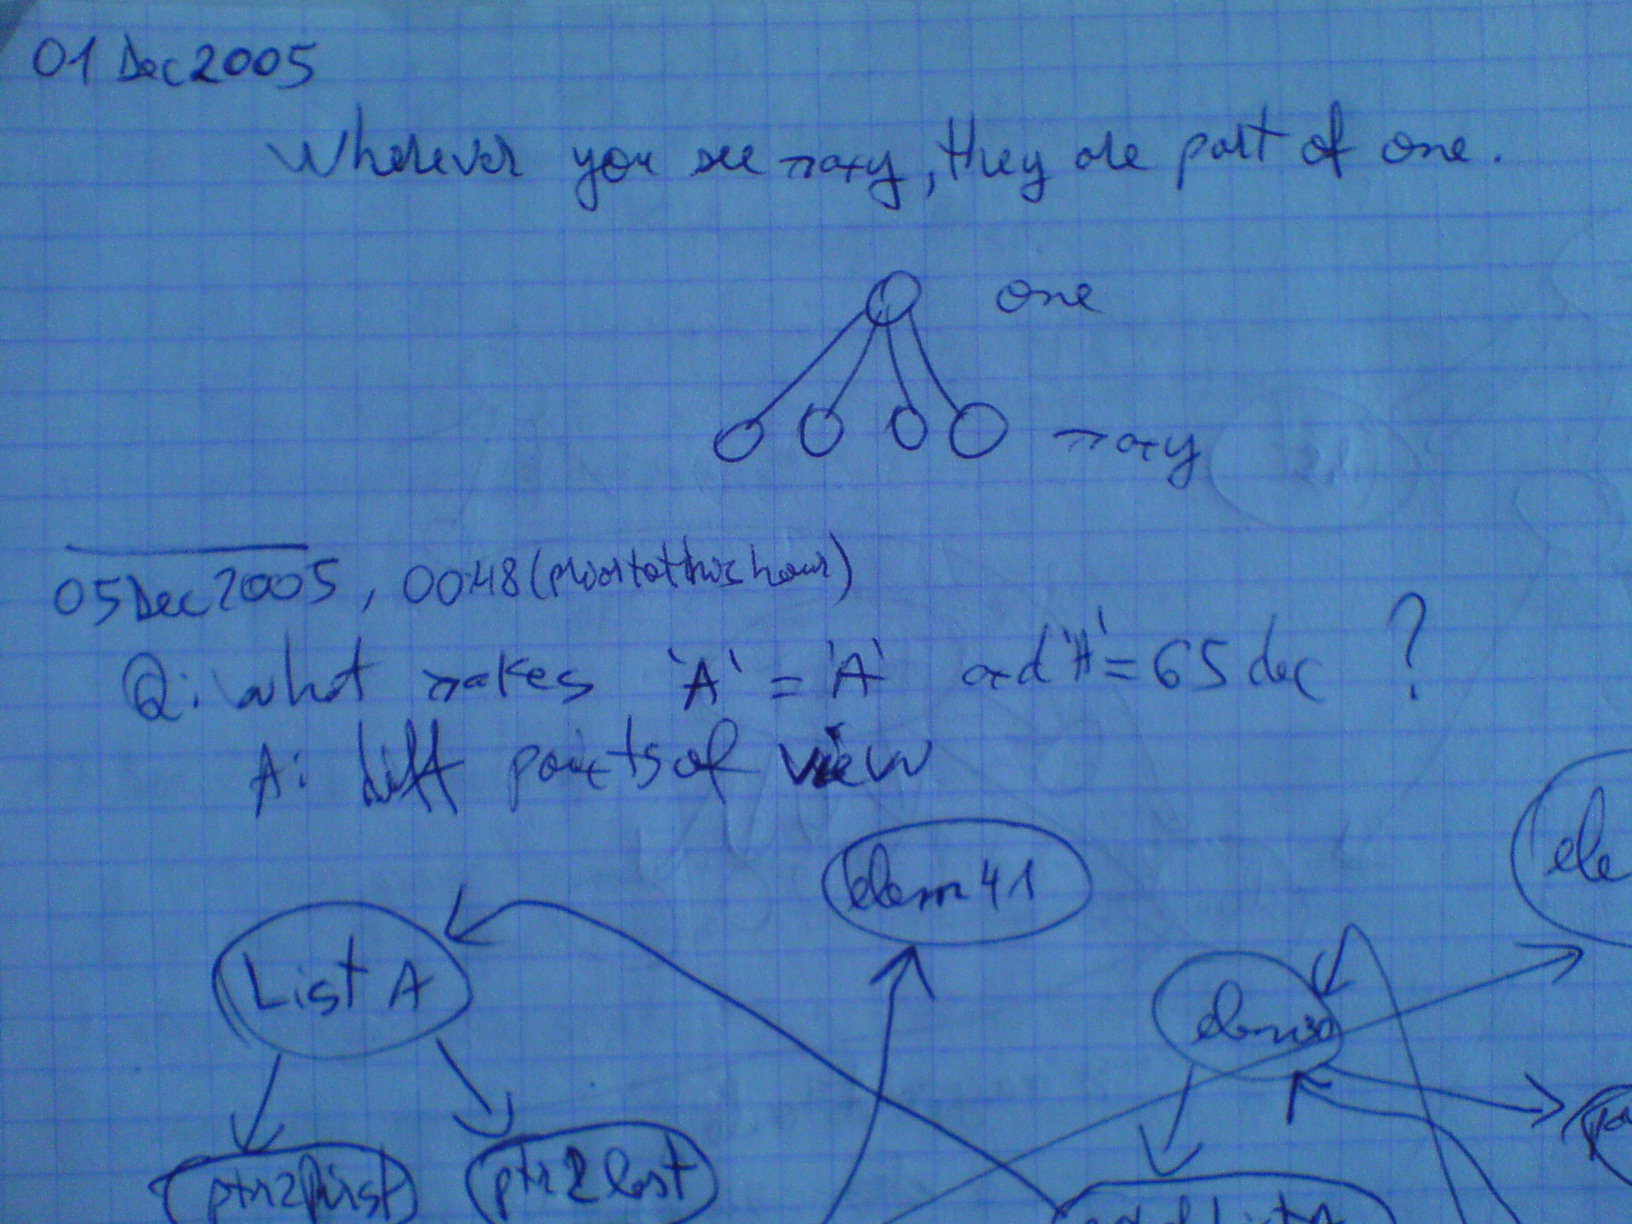 01 Dec 2005
Wherever you see many, they are part of one.
one
many
05 Dec 2005, 0048 (prior to this hour)
Q: what makes 'A' = 'A' and 'A' = 65 dec ?
A: diff points of view
elem 41
ele
List A
elem30
ptr2first
ptr2last
List A